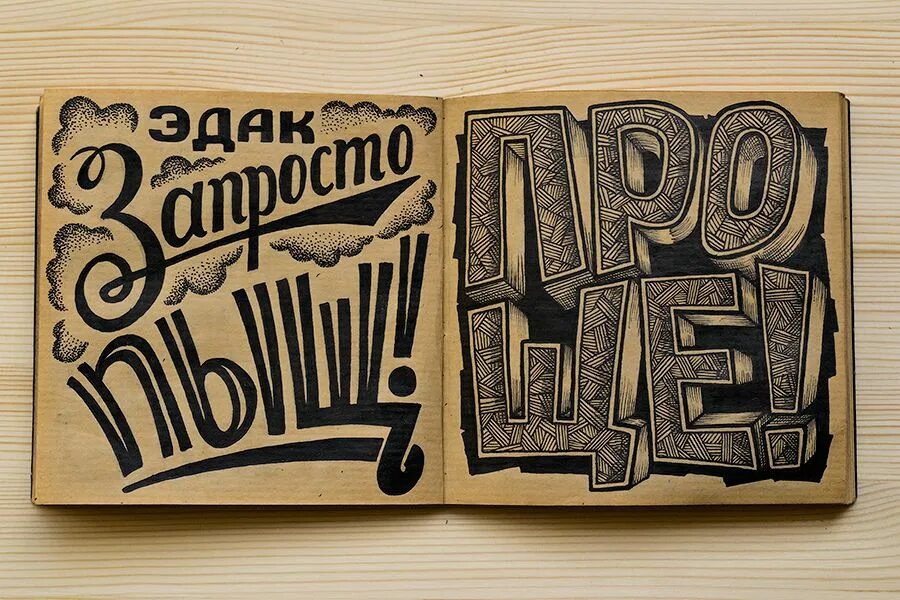 ЭДАК
Запросто
ПЫЩ!
ПРО
ЩЕ!